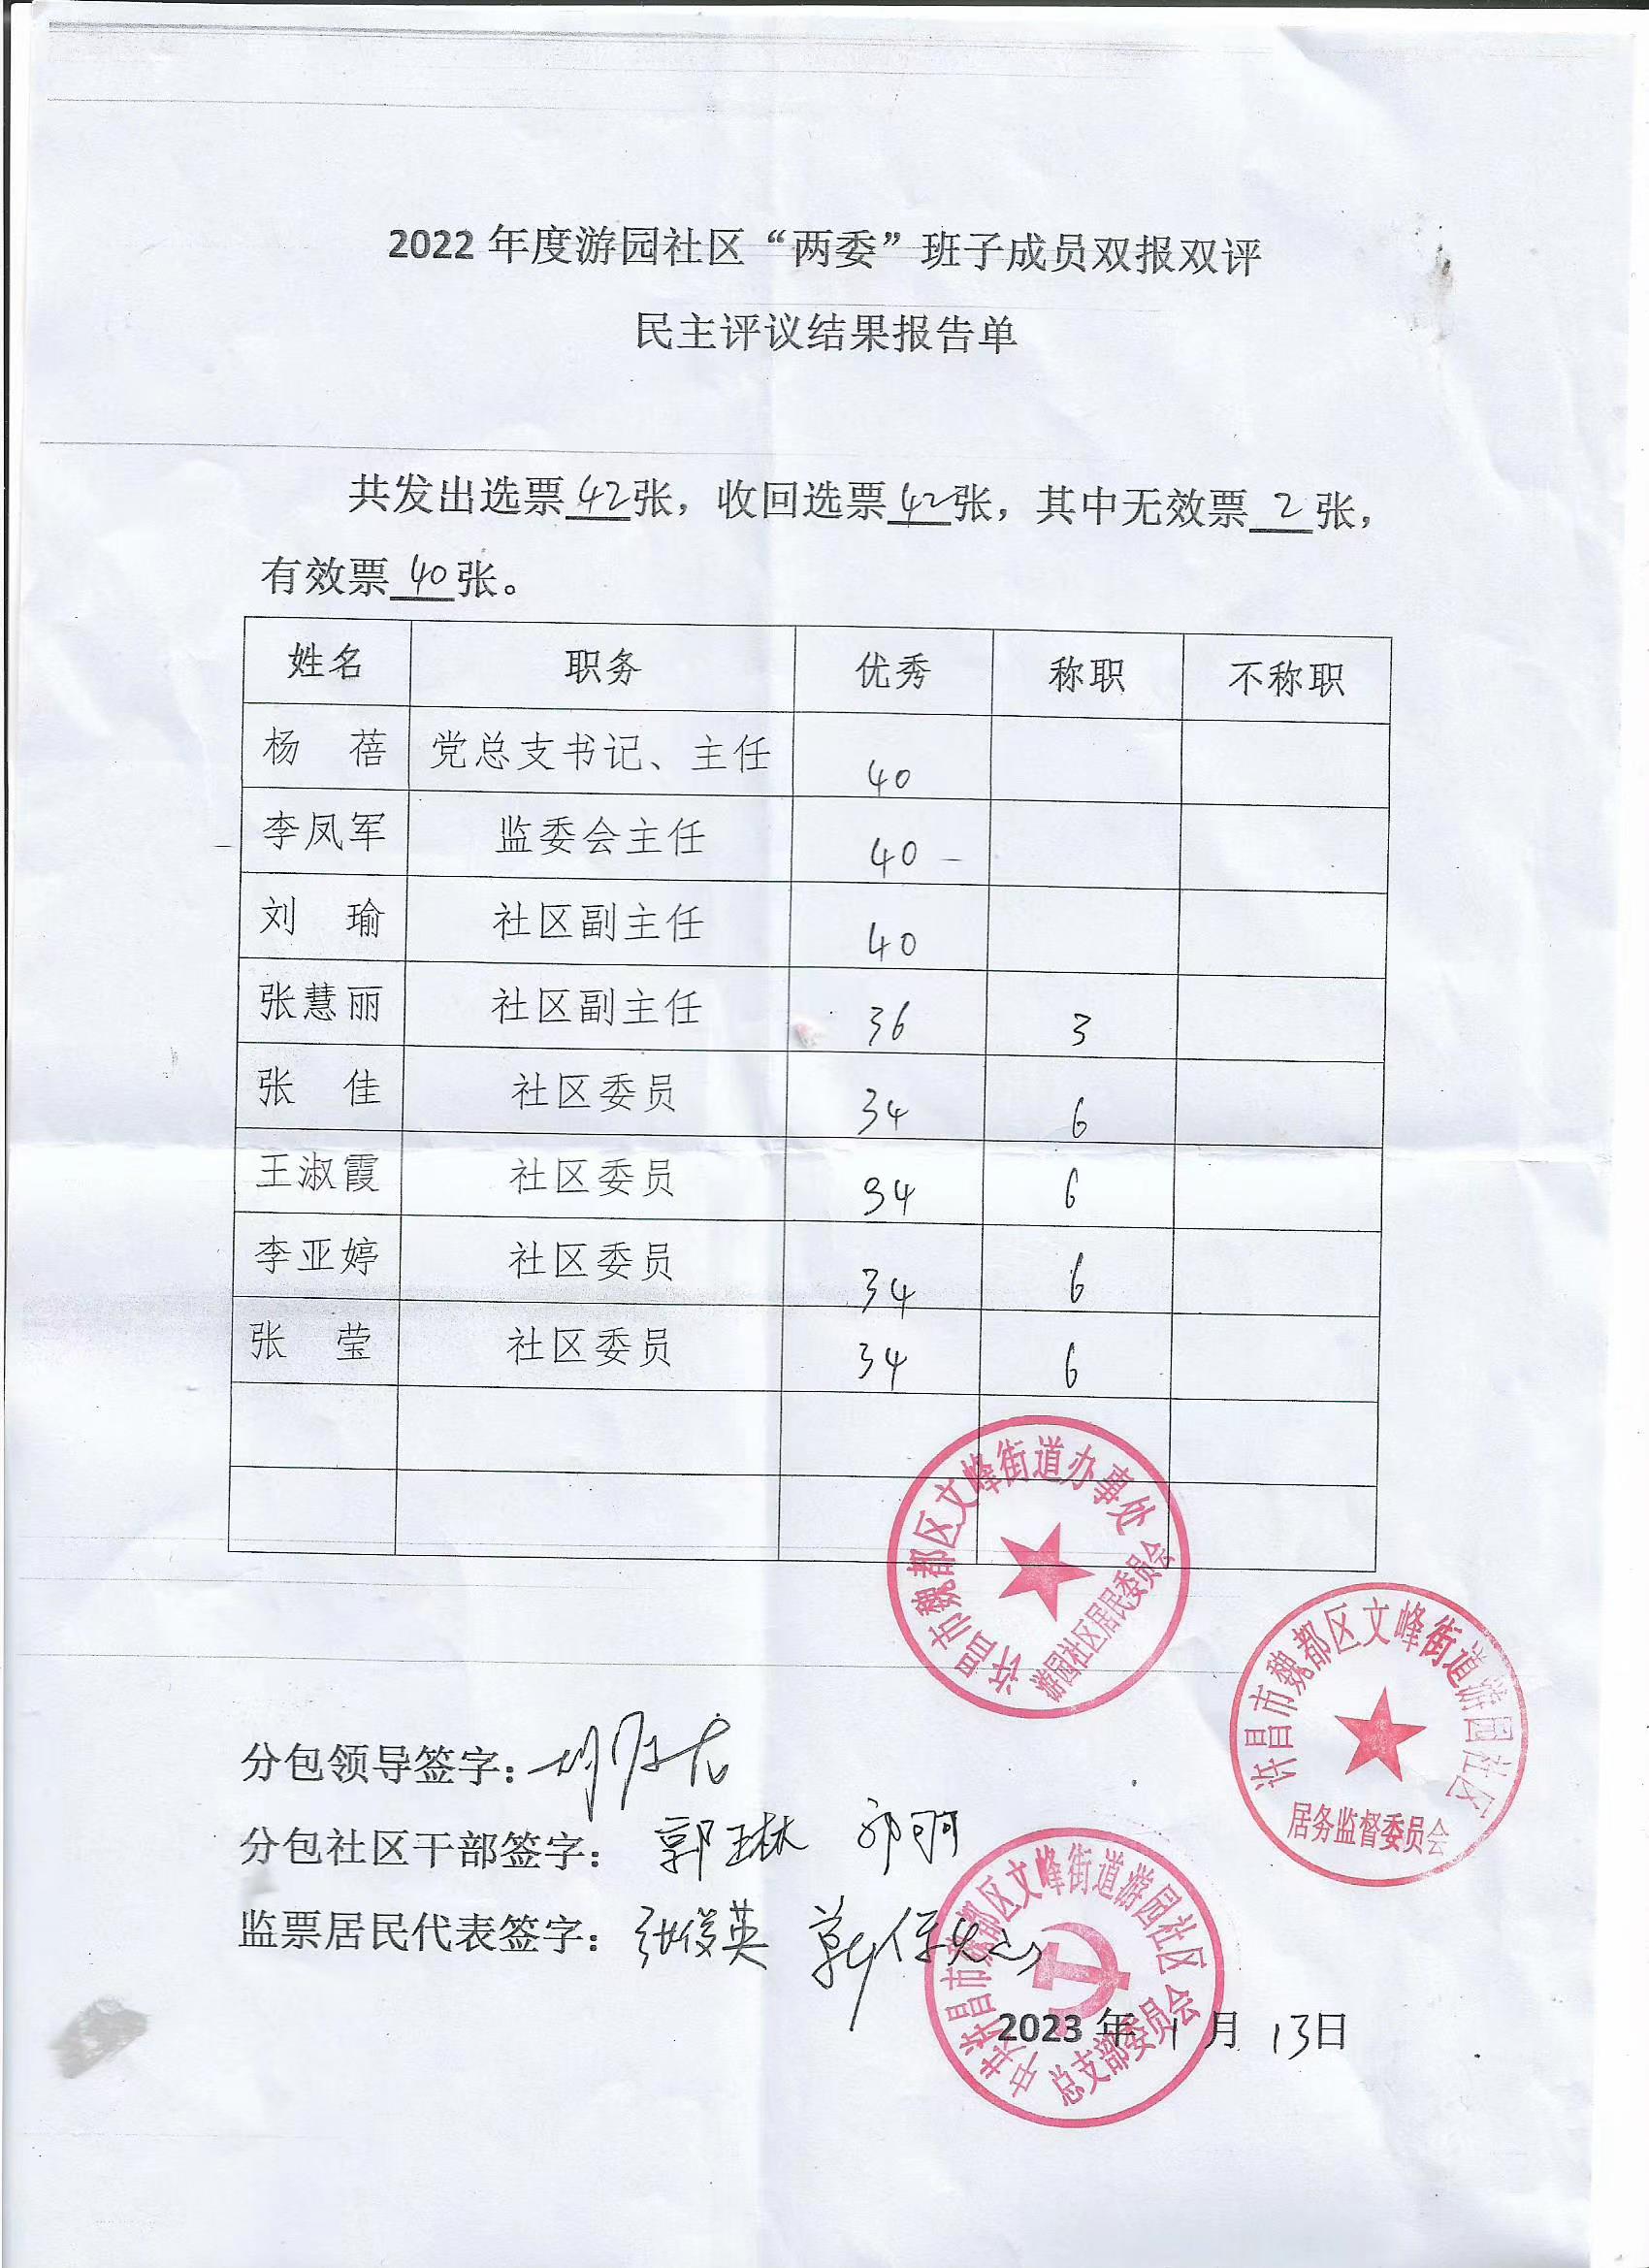 2022年度游园社区“两委”班子成员双报双评
民主评议结果报告单
共发出选票42张，收回选票42张，其中无效票2张，
有效票40张。
姓名 职务 优秀 称职 不称职
杨 蓓 党总支书记、主任 40
李凤军 监委会主任 40
刘 瑜 社区副主任 40
张慧丽 社区副主任 36 3
张 佳 社区委员 34 6
王淑霞 社区委员 34 6
李亚婷 社区委员 34 6
张 莹 社区委员 34 6
许昌市魏都区文峰街道办事处
游园社区居民委员会
许昌市魏都区文峰街道游园社区
居务监督委员会
分包领导签字：
分包社区干部签字： 郭琳
监票居民代表签字： 张俊英
中共许昌市魏都区文峰街道游园社区
总支部委员会
2023年1月13日